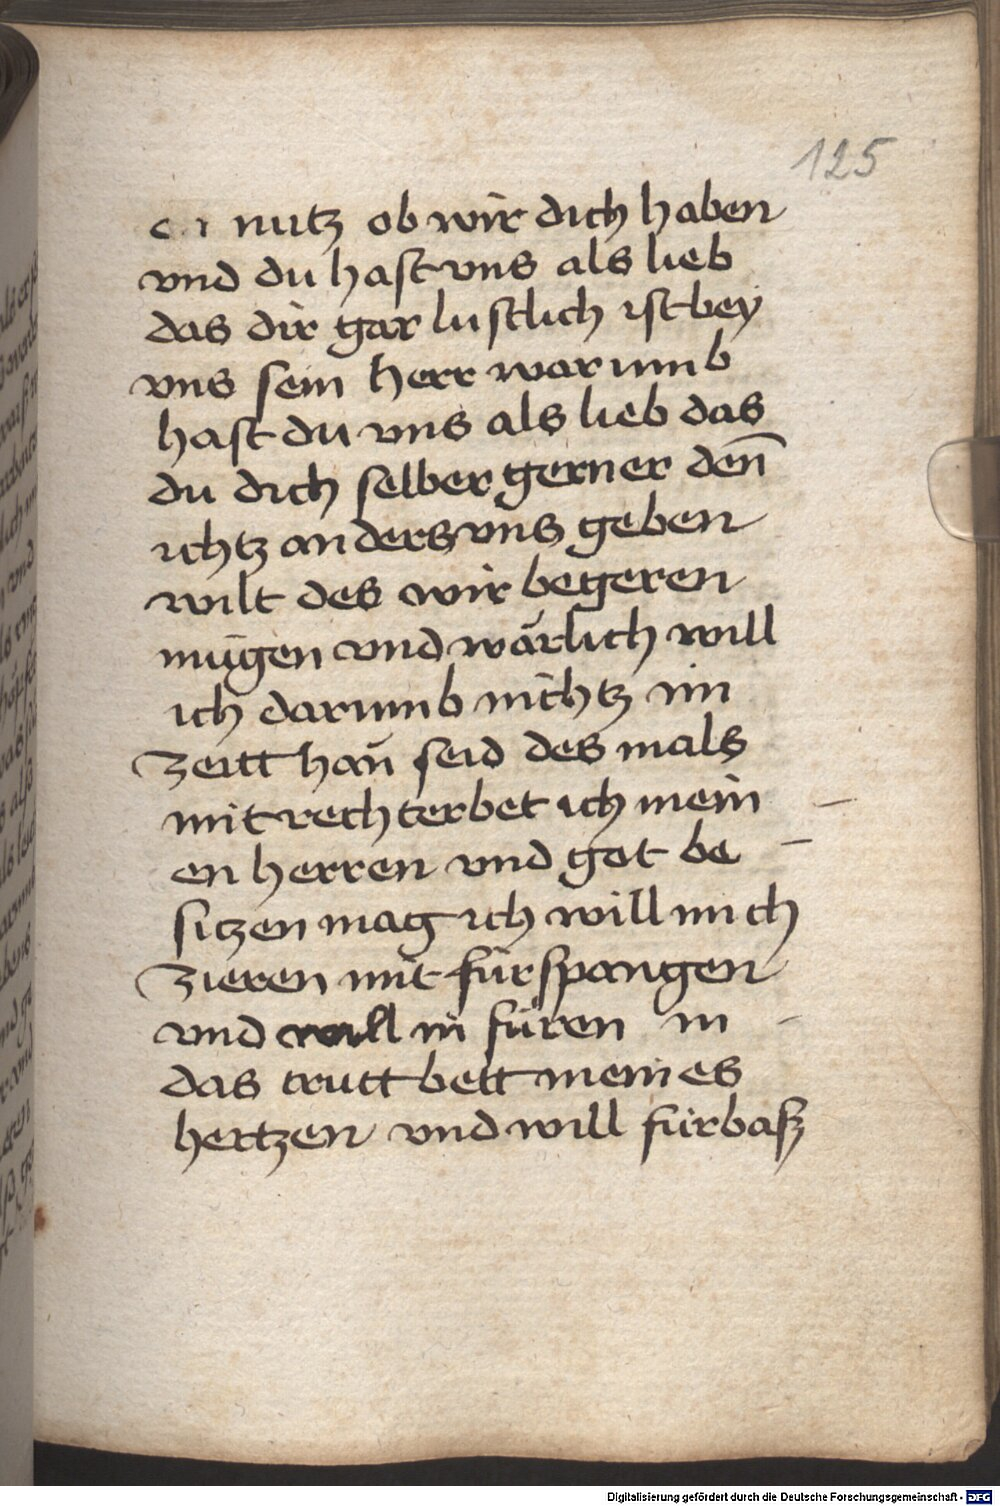 125
nutz ob wir dich haben
vnd du hast vns als lieb
das dir gar lustlich ist bey
vns sein herr warumb
hast du vns als lieb das
du dich selber gerner den̄
ichtz anders vns geben
wilt des wir begeren
mügen vnd wärlich will
ich darumb nichtz im
zeitt han̄ seid des mals
mit rechter bet ich mein
en herren vnd got be
sitzen mag ich will mich
zieren mit fürspangen
vnd will in füren in
das trutt bett meines
hertzen vnd will fürbasz
Digitalisierung gefördert durch die Deutsche Forschungsgemeinschaft - DFG